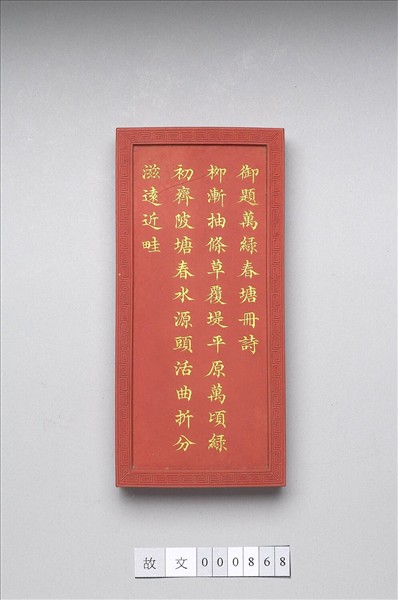 御題萬綠春塘冊詩
柳漸抽條草覆堤平原萬頃綠
初齊陂塘春水源頭活曲折分
滋遠近畦
故文000868